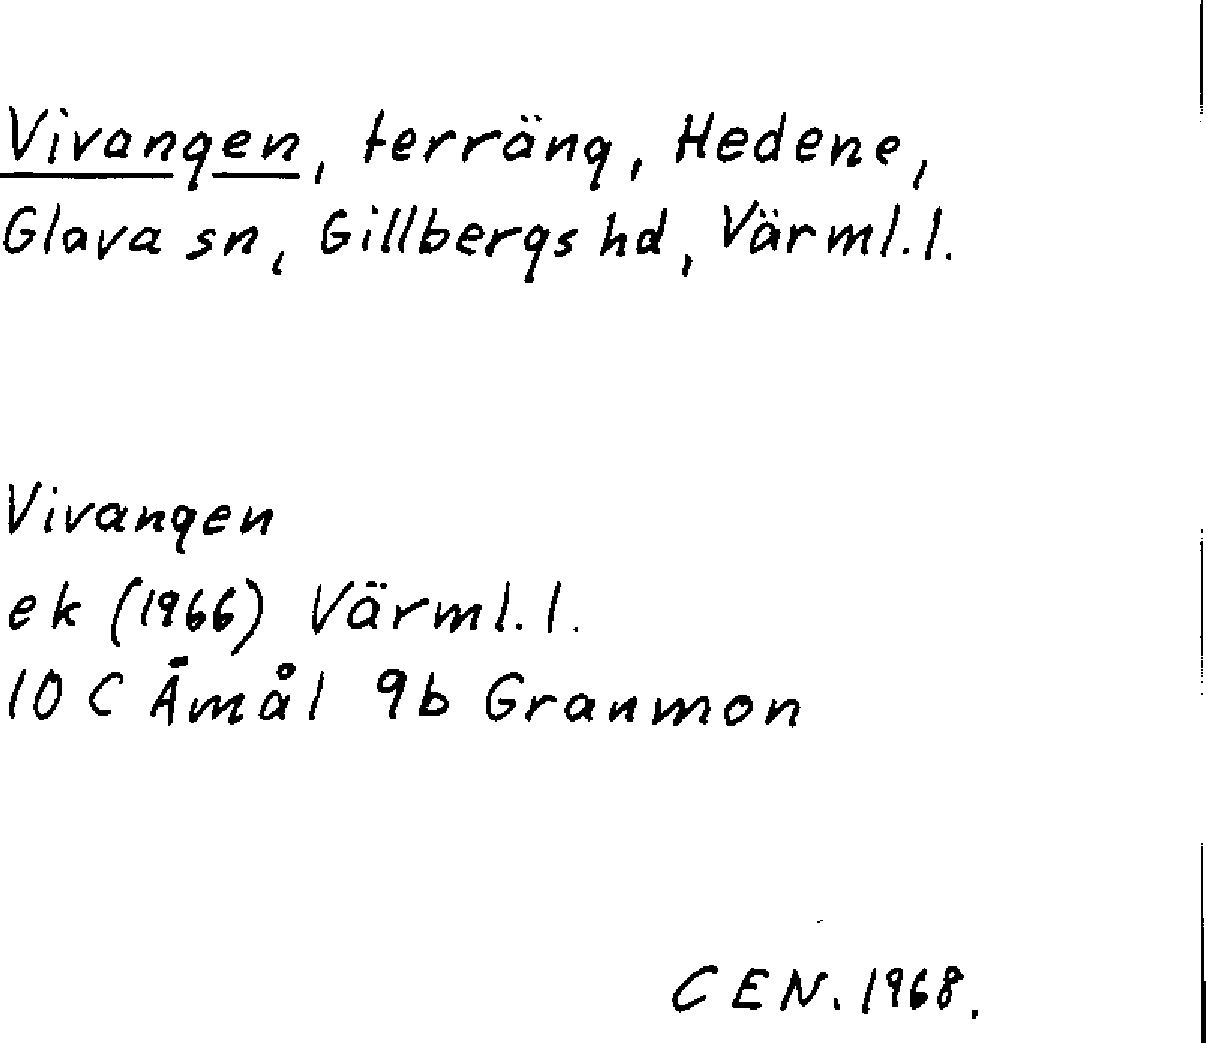 Vivangen, terräng, Hedene,
Glava sn, Gillbergs hd, Värml. l.
Vivangen
ek (1966) Värml. l.
10 C Åmål 9b Granmon
CEN. 1968.